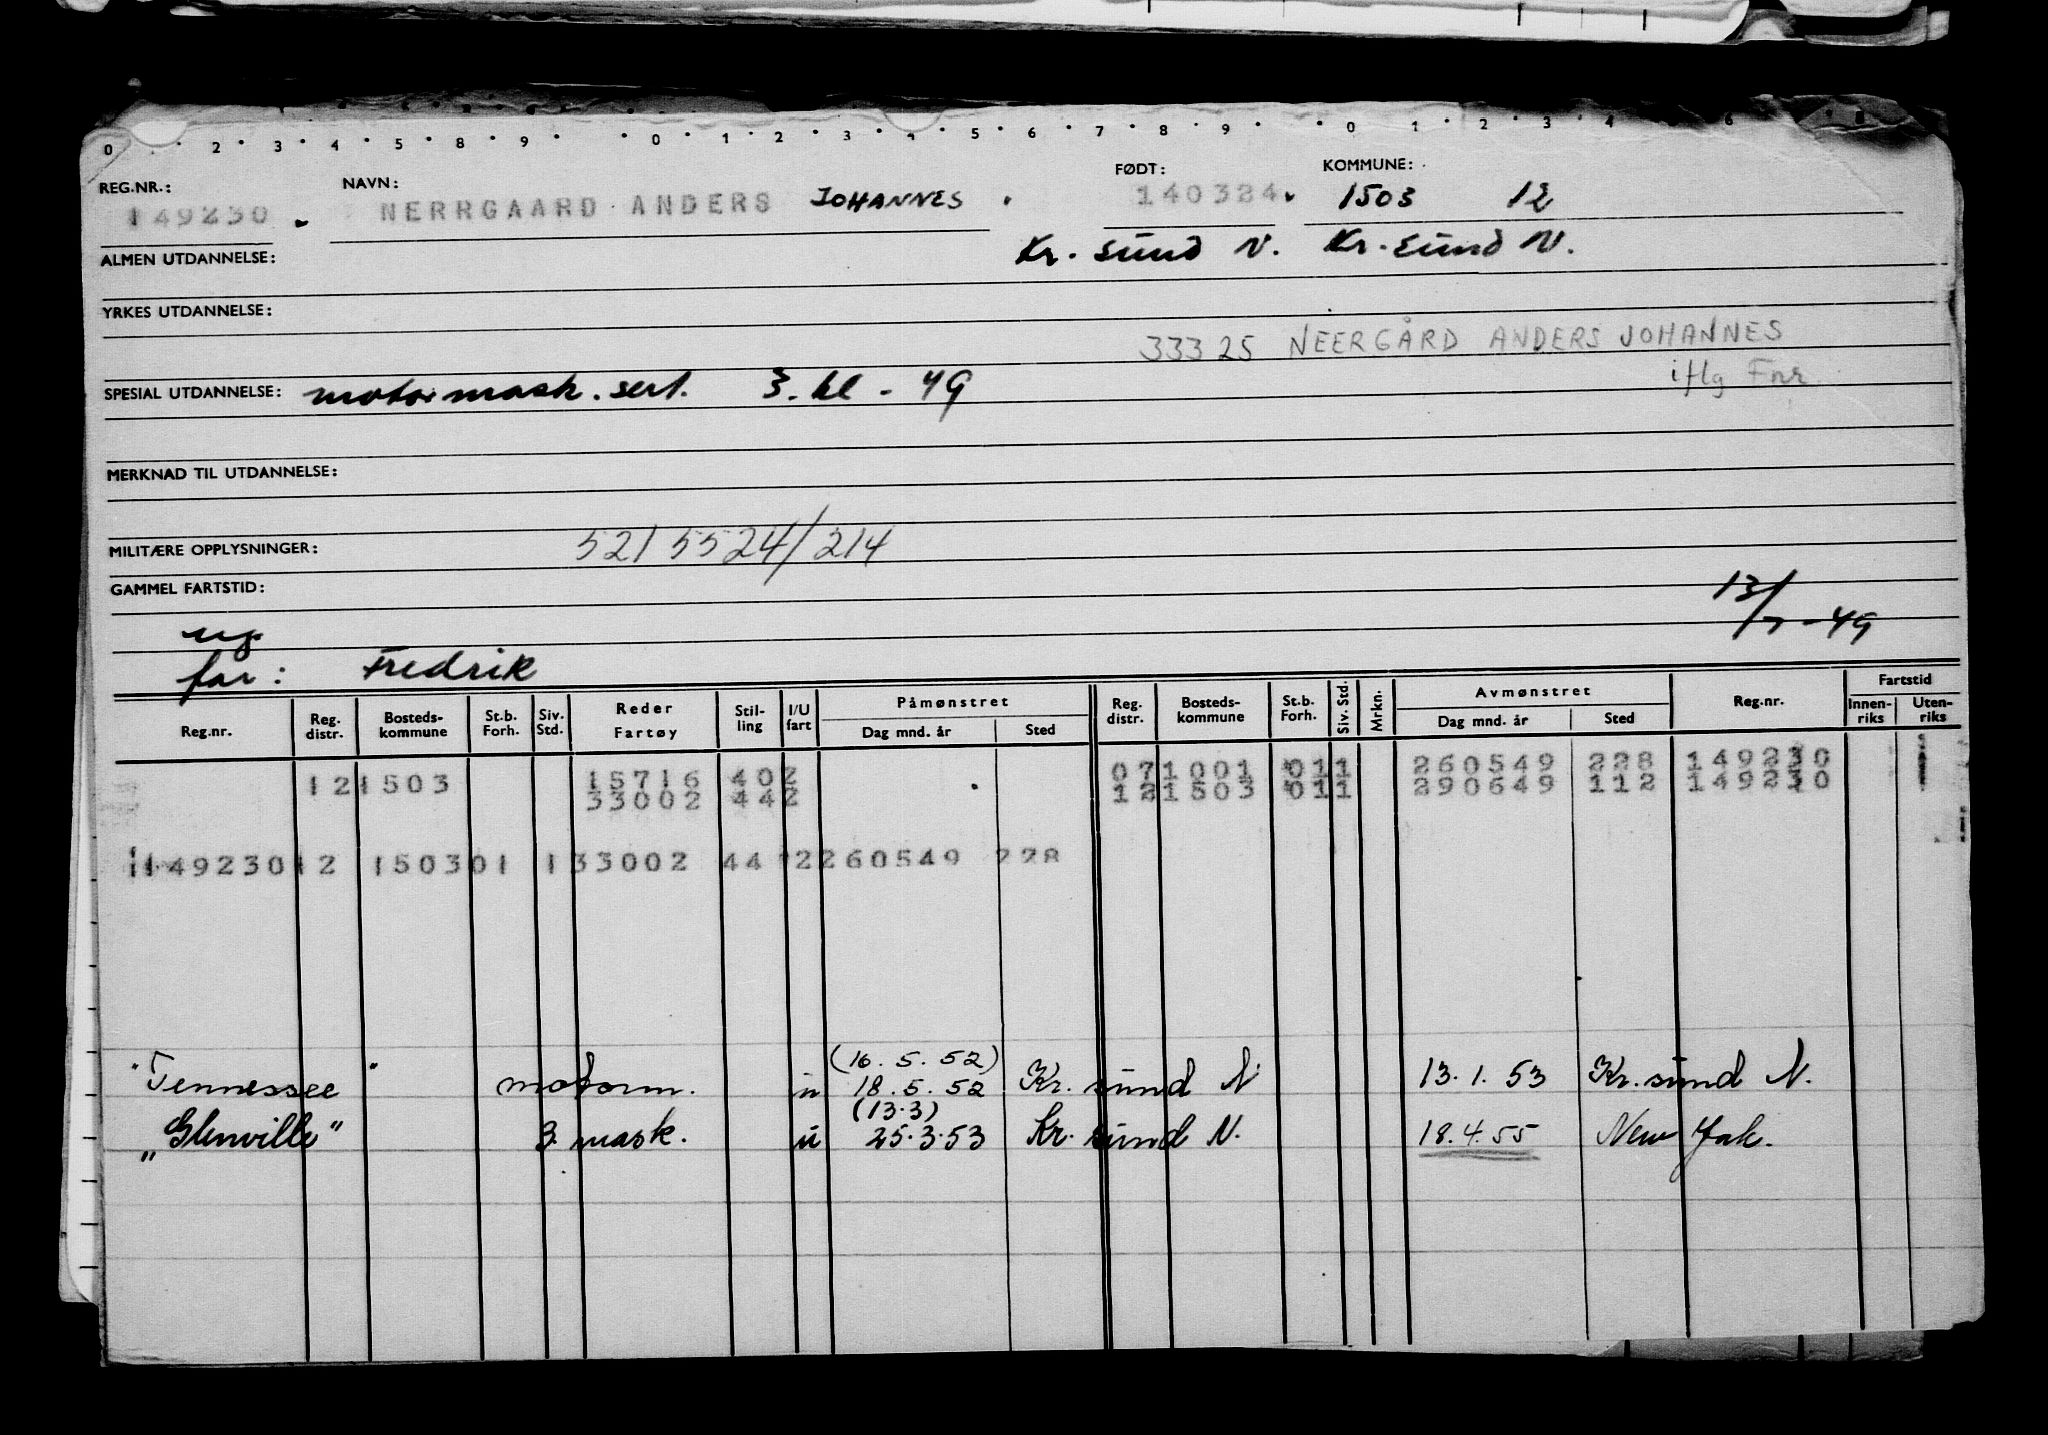 0 . 2 . 3 . 4 . 5 . 8 . 9 . . 0 . 1 . 2 . 3 . 4 . 5 . 6 . 7 . 8 . 9 . . 0 . 1 . 2 . 3 . 4 6 8
REG.NR.: NAVN: FØDT: KOMMUNE:
149230 NERRGAARD ANDERS JOHANNES 140324 1503 12
ALMEN UTDANNELSE: Kr. sund N. Kr. sund N.
YRKES UTDANNELSE:
33325 NEERGÅRD ANDERS JOHANNES
iflg Fnr
SPESIAL UTDANNELSE: motormask. sert. 3. kl - 49
MERKNAD TIL UTDANNELSE:
MILITÆRE OPPLYSNINGER: 5215524/214
GAMMEL FARTSTID: 13/7-49
ug
far: Fredrik
Reg.nr. Reg. distr. Bosteds-kommune St.b. Forh. Siv. Std. Reder Fartøy Stil-ling I/U fart Påmønstret Dag mnd. år Sted Reg. distr. Bosteds-kommune St.b. Forh. Siv. Std. Mrkn. Avmønstret Dag mnd. år Sted Reg.nr. Fartstid Innen-riks Uten-riks
15716 402 071001 011 260549 228 149230
121503 33002 442 121503 011 290649 112 149230
149230 12 150301 1 33002 44 2 260549 228
(16.5.52)
"Tennessee" motorm. u 18.5.52 Kr. sund N 13.1.53 Kr. sund N.
(13.3)
"Glenville" 3 mask. u 25.3.53 Kr. sund N. 18.4.55 New York.